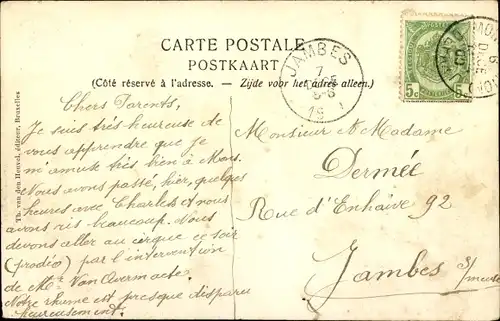 CARTE POSTALE
POSTKAART
(Côté réservé à l'adresse. — Zijde voor het adres alleen.)
JAMBES
7
8-S
19
MONS
6
5c 5c
Th. van den Heuvel, éditeur, Bruxelles
Chers Parents,
Je suis très heureuse de
vous apprendre que je
m'amuse très bien à Mons.
Nous avons passé, hier, quelques
heures avec Charles et nous
avons ris beaucoup. Nous
devons aller au cirque ce soir
(prodéo) par l'intervention
de Mr Van Overmaete.
Notre rhume est presque disparu
heureusement.
Monsieur et Madame
Dermée
Rue d'Enhaive 92
Jambes s/meuse